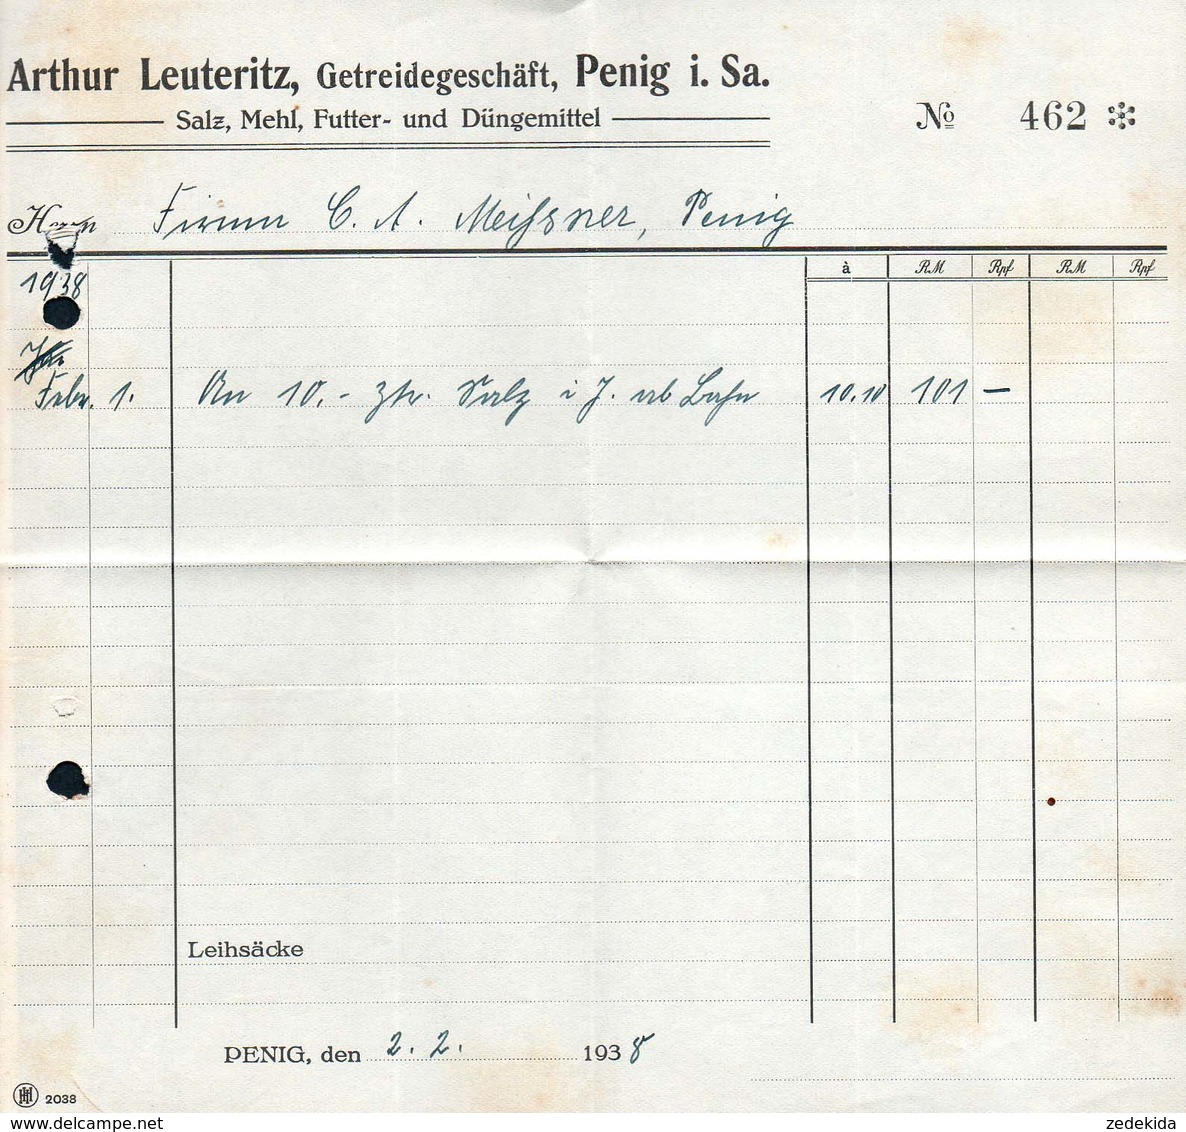 Arthur Leuteritz, Getreidegeschäft, Penig i. Sa.
Salz, Mehl, Futter- und Düngemittel
No 462
Herrn Firma C. A. Meißner, Penig
1938 à RM Rpf RM Rpf
Febr. 1. An 10.- Ztr. Salz i J. ab Bahn 10.10 101 —
Leihsäcke
PENIG, den 2. 2. 1938
2038
www.delcampe.net zedekida